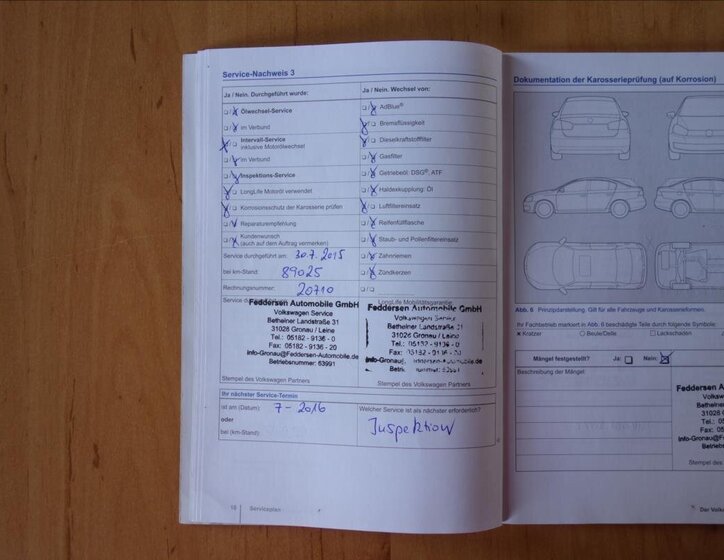 Service-Nachweis 3
Ja / Nein. Durchgeführt wurde:
Ja / Nein. Wechsel von:
Ölwechsel-Service
AdBlue®
im Verbund
Bremsflüssigkeit
Intervall-Service
inklusive Motorölwechsel
Dieselkraftstofffilter
im Verbund
Gasfilter
Inspektions-Service
Getriebeöl: DSG®, ATF
LongLife Motoröl verwendet
Haldexkupplung: Öl
Korrosionsschutz der Karosserie prüfen
Luftfiltereinsatz
Reparaturempfehlung
Reifenfüllflasche
Kundenwunsch
(auch auf dem Auftrag vermerken)
Staub- und Pollenfiltereinsatz
Service durchgeführt am: 30.7.2015
Zahnriemen
bei km-Stand: 89025
Zündkerzen
Rechnungsnummer: 20710
LongLife Mobilitätsgarantie
Feddersen Automobile GmbH
Volkswagen Service
Betheiner Landstraße 31
31028 Gronau / Leine
Tel.: 05182 - 9136 - 0
Fax: 05182 - 9136 - 20
info-Gronau@Feddersen-Automobile.de
Betriebsnummer: 63991
Stempel des Volkswagen Partners
Feddersen Automobile GmbH
Volkswagen Service
Betheiner Landstraße 31
31028 Gronau / Leine
Stempel des Volkswagen Partners
Ihr nächster Service-Termin
ist am (Datum): 7-2016
oder
bei (km-Stand):
Welcher Service ist als nächster erforderlich?
Inspektion
18 Serviceplan
Dokumentation der Karosserieprüfung (auf Korrosion)
Abb. 6 Prinzipdarstellung. Gilt für alle Fahrzeuge und Karosserieformen.
Ihr Fachbetrieb markiert in Abb. 6 beschädigte Teile durch folgende Symbole:
Kratzer
Beule/Delle
Lackschäden
Mängel festgestellt? Ja: Nein:
Beschreibung der Mängel:
Feddersen
Volksw
Betheine
31028
Tel.:
Fax:
info-Gronau@
Betriebs
Stempel des
Der Volks